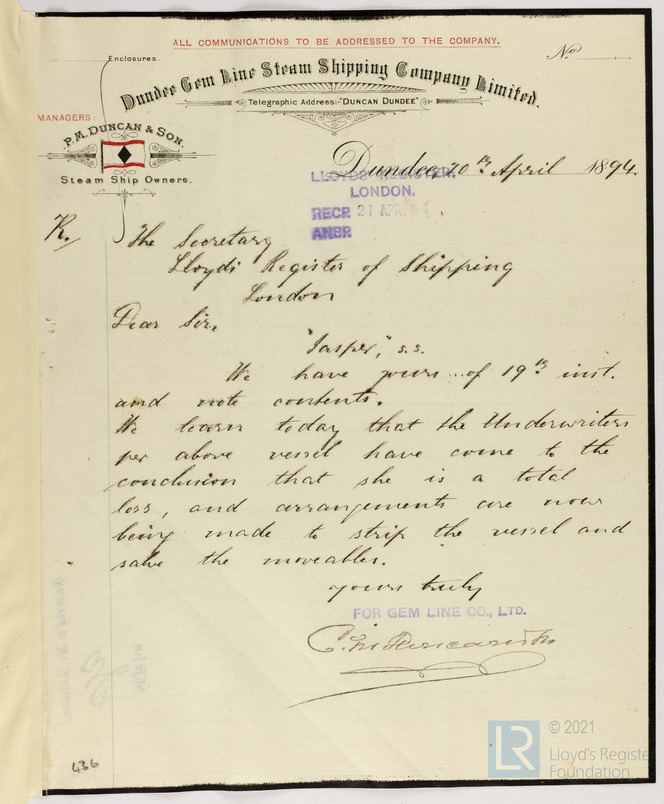 ALL COMMUNICATIONS TO BE ADDRESSED TO THE COMPANY.
Enclosures.
No
Dundee Gem Line Steam Shipping Company Limited.
Telegraphic Address:-"DUNCAN DUNDEE"
MANAGERS:
P.M. DUNCAN & SON.
Steam Ship Owners.
Dundee, 20th April 1894.
LLOYD'S REGISTER,
LONDON.
RECP. 21 APR. 94
ANSD.
R/
The Secretary
Lloyds Register of Shipping
London
Dear Sir,
"Jasper," s.s.
We have yours of 19th inst.
and note contents.
We learn today that the Underwriters
per above vessel have come to the
conclusion that she is a total
loss, and arrangements are now
being made to strip the vessel and
salve the moveables.
yours truly
FOR GEM LINE CO., LTD.
P.M. Duncan & Son
436
LR
© 2021
Lloyd's Registe
Foundation